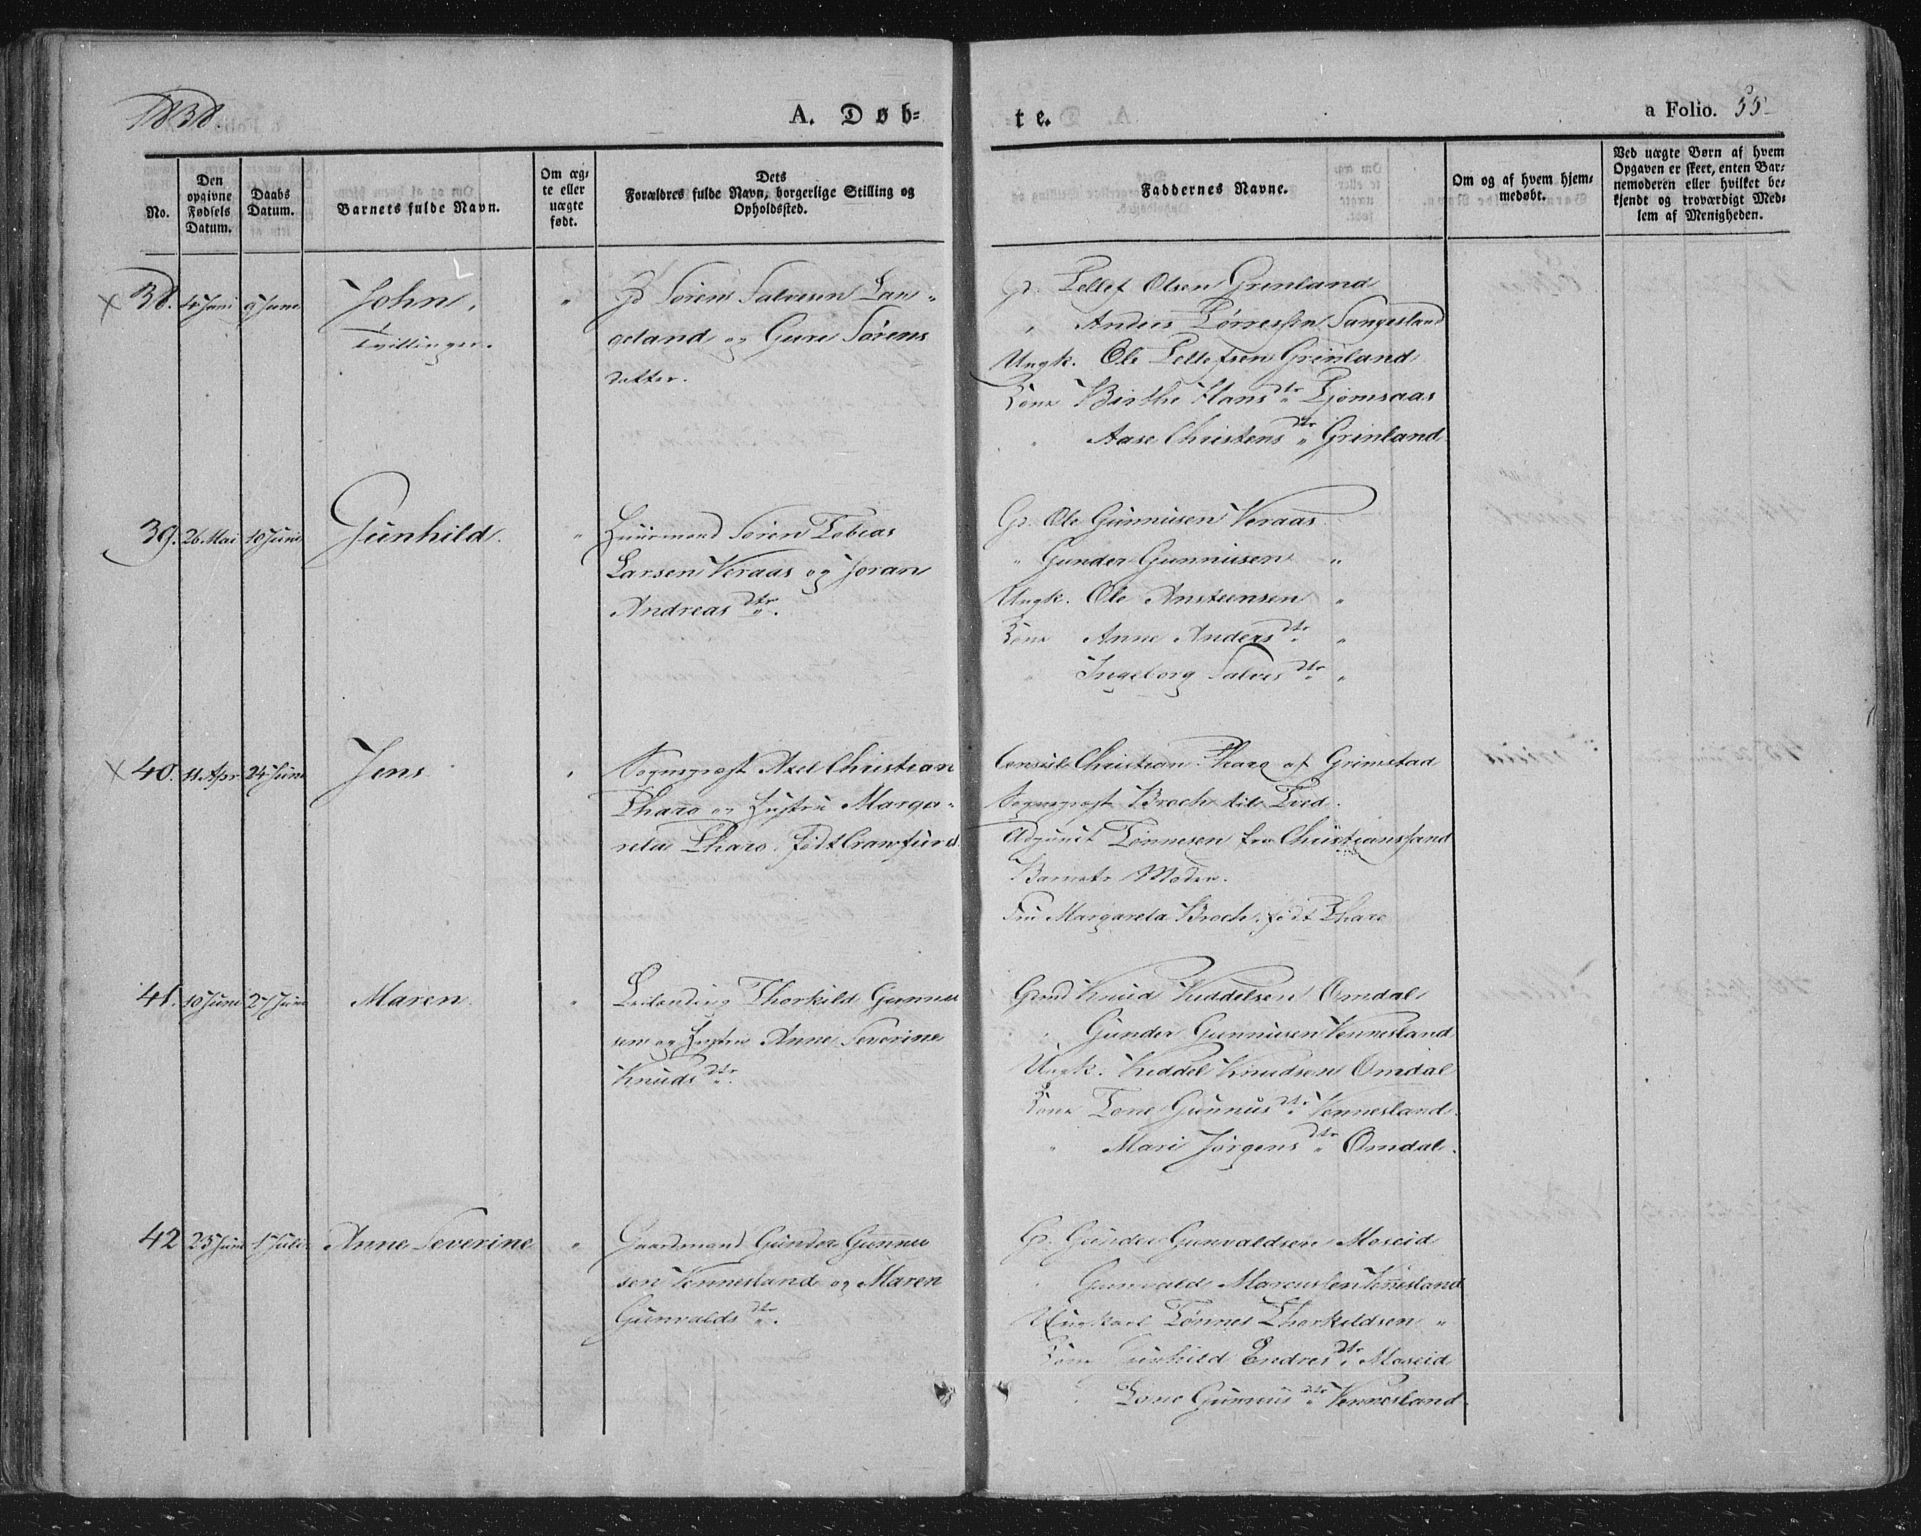 1838.
A. Døb-
te.
a Folio. 55
No.
Den opgivne Fødsels Datum.
Daabs Datum.
Barnets fulde Navn.
Om æg-te eller uægte født.
Dets Forældres fulde Navn, borgerlige Stilling og Opholdssted.
Faddernes Navne.
Om og af hvem hjem-medøbt.
Ved uægte Børn af hvem Opgaven er skeet, enten Bar-nemoderen eller hvilket be-kjendt og troværdigt Med-lem af Menigheden.
38. 4 Juni 9 Juni John,
Tvillinger.
Gd Søren Salvesen Lan-
geland og Gure Sørens
datter.
Gd. Tellef Olsen Grenland
" Anders Tørressen Sangesland
Ungk. Ole Tellefsen Grenland
Kone Birthe Hans dtr Tjomsaas
" Aase Christens dtr Grenland
39. 26 Mai 10 Juni Gunhild.
Huusmand Søren Tobias
Larsen Veraas og Joran
Andreas dtr.
Gd. Ole Gunnusen Veraas
" Gunder Gunnusen "
Ungk. Ole Ansteensen "
Kone Anne Anders dtr "
" Ingeborg Salves dtr "
40. 11 Apr 24 Juni Jens
Sognepræst Axel Christian
Pharo og Hustru Marga-
reta Pharo, født Crawfurd.
Consul Christian Pharo af Grimstad
Sognepræst Broch til Tved.
Adjunct Tønnesen fra Christianssand
Barnets Moder.
Fru Margareta Broch, født Pharo
41. 10 Juni 27 Juni Maren.
Leilænding Thorkild Gunnu
sen og Hustru Anne Severine
Knuds dtr.
Grmd Knud Kiddelsen Omdal
" Gunder Gunnusen Vennesland
Ungk. Kiddel Knudsen Omdal
Kone Tone Gunnus dtr Vennesland.
" Mari Jørgens dtr Omdal.
42 25 Juni 1 Juli Anne Severine
Gaardmand Gunder Gunnu
sen Vennesland og Maren
Gunvalds dtr.
Gd. Gunder Gunvaldsen Moseid
" Gunvald Marcussen Vennesland
Ungkarl Tønnes Thorkildsen "
Kone Gunhild Endres dtr Moseid
" Tone Gunnus dtr Vennesland